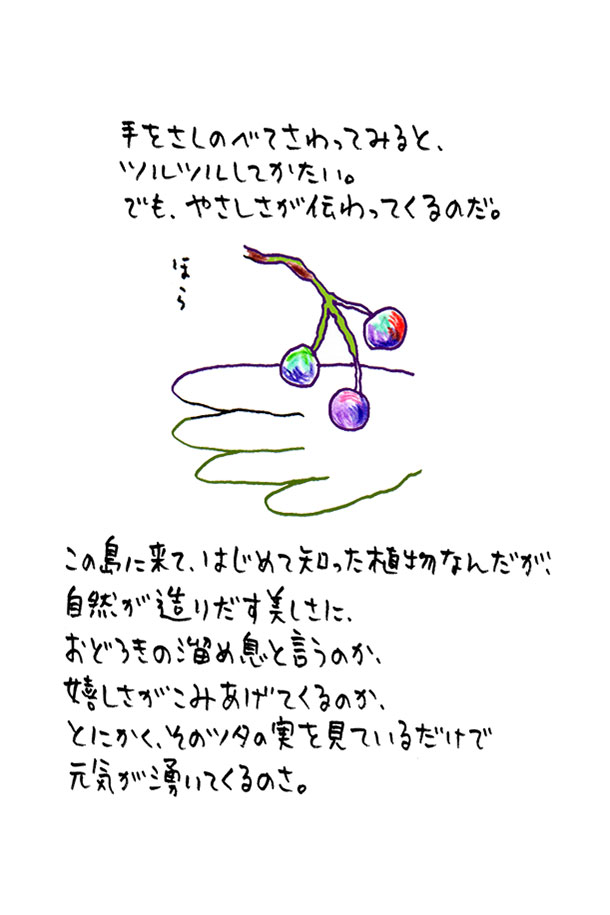 手をさしのべてさわってみると、
ツルツルしてかたい。
でも、やさしさが伝わってくるのだ。
ほら
この島に来て、はじめて知った植物なんだが、
自然が造りだす美しさに、
おどろきの溜め息と言うのか、
嬉しさがこみあげてくるのか、
とにかく、そのツタの実を見ているだけで
元気が湧いてくるのさ。